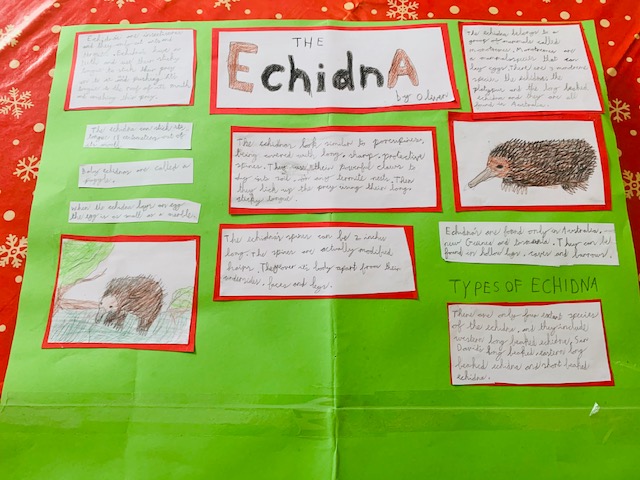 THE
EchidnA
by Oliver
Echidna are
and they
Echidnas have no
teeth and use their sticky
tongue to
The echidna can stick its
tongue
of its mouth.
Baby echidnas are called a
puggle.
When the echidna lays an egg
the egg is as small as a marble.
The echidnas look similar to porcupines,
being covered with long, sharp, protective
spines. They use their powerful claws to
dig into soil, or any termite nests. Then
they lick up the prey using their long
sticky tongue.
The echidna's spines can be 2 inches
long. The spines are actually modified
hairs. They cover its body apart from their
undersides, faces and legs.
The echidna belongs to a
group of mammals called
monotremes. Monotremes are
a mammal species that can
lay eggs. There are 3 monotreme
species the echidnas, the
platypus and the long beaked
echidna and they are all
found in Australia.
Echidna's are found only in Australia,
new Guinea and tasmania. They can be
found in hollow logs, caves and burrows.
TYPES OF ECHIDNA
There are only four extant species
of the echidna, and they include
western long beaked echidna, Sir
David's long beaked, eastern long
beaked echidna and short beaked
echidna.